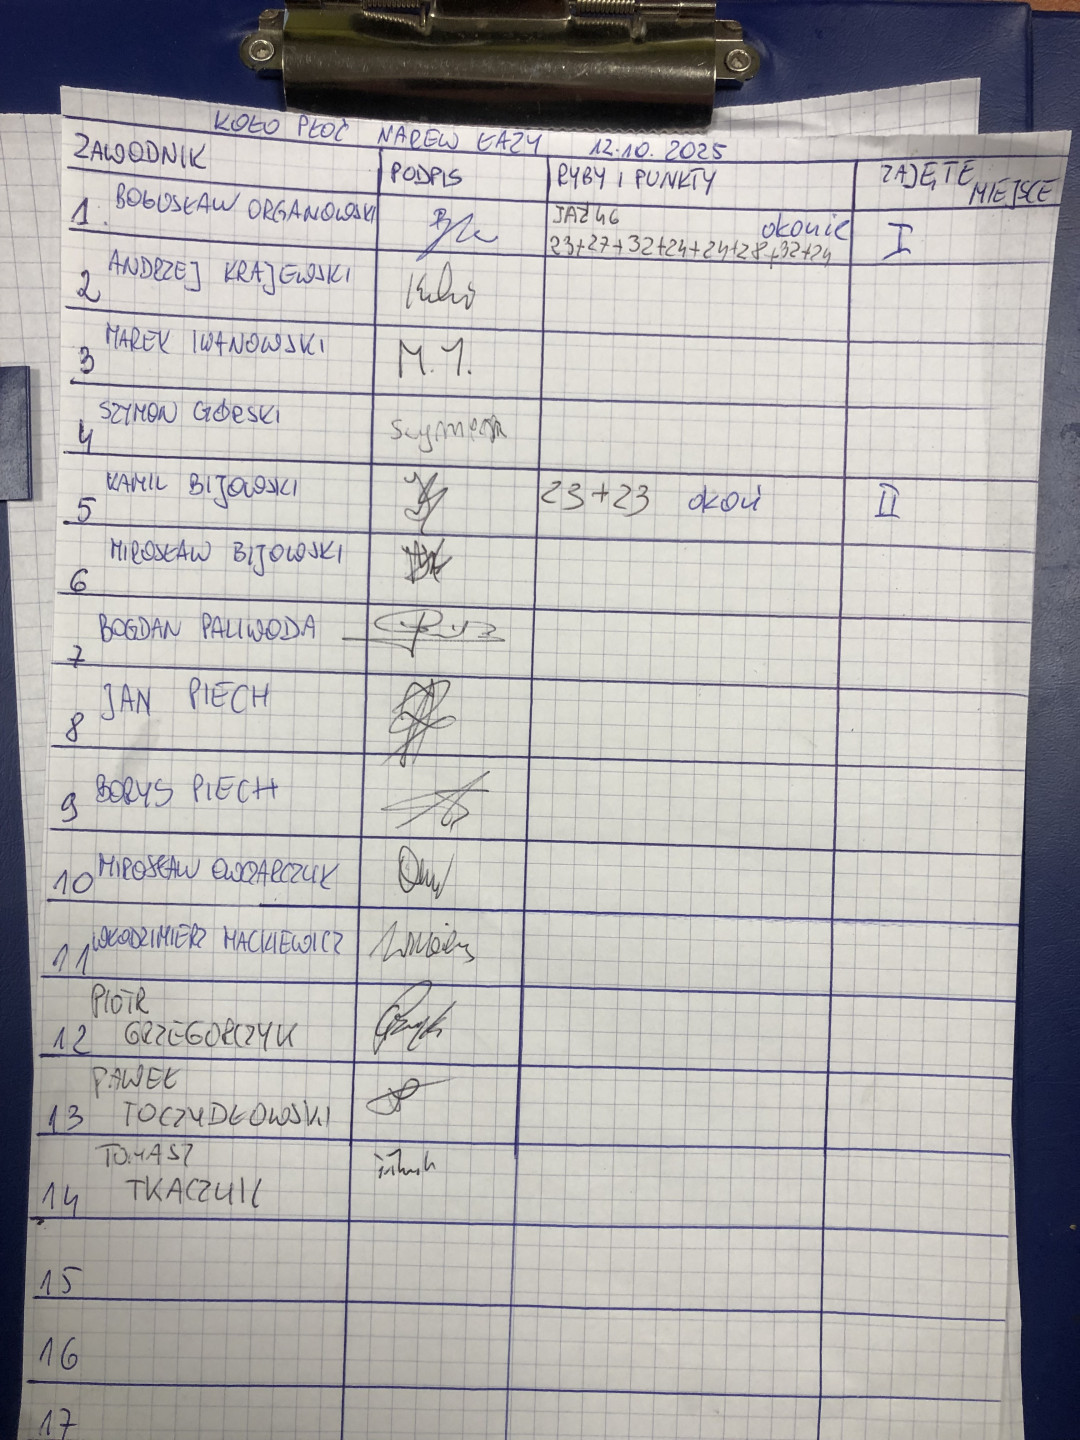 KOŁO PŁOĆ NAREW ŁAZY 12.10.2025
ZAWODNIK PODPIS RYBY I PUNKTY ZAJĘTE MIEJSCE
1. BOGUSŁAW ORGANOWSKI JAŹ 46 okonie
23+27+32+24+24+28+32+24 I
2 ANDRZEJ KRAJEWSKI
3 MAREK IWANOWSKI M.I.
4 SZYMON GÓRSKI Szymon
5 KAMIL BIJOWSKI 23+23 okoń II
6 MIROSŁAW BIJOWSKI
7 BOGDAN PALIWODA
8 JAN PIECH
9 BORYS PIECH
10 MIROSŁAW OWCZARCZUK
11 WŁODZIMIERZ MACKIEWICZ
PIOTR
12 GRZEGORCZYK
PAWEŁ
13 TOCZYDŁOWSKI
TOMASZ
14 TKACZUK
15
16
17